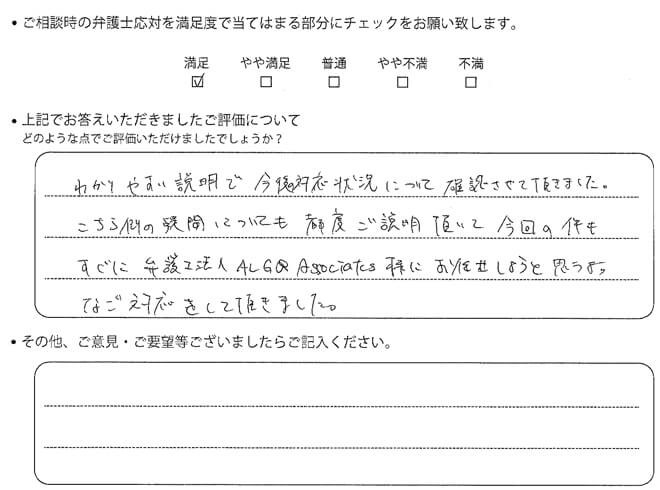 • ご相談時の弁護士応対を満足度で当てはまる部分にチェックをお願い致します。
満足 やや満足 普通 やや不満 不満
☑ □ □ □ □
• 上記でお答えいただきましたご評価について
どのような点でご評価いただけましたでしょうか？
わかりやすい説明で今後対応状況について確認させて頂きました。
こちら側の疑問についても都度ご説明頂いて今回の件も
すぐに弁護士法人ALG&Associates様にお任せしようと思うよ
なご対応をして頂きました。
• その他、ご意見・ご要望等ございましたらご記入ください。